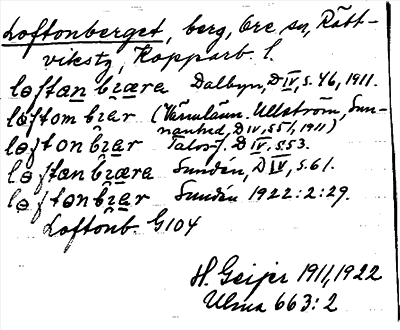 Loftonberget, berg, Ore sn, Rätt-
vikstg, Kopparb. l.
løftan bı̄æra Dalbyn, D IV, s. 46, 1911.
løftom bı̄ær (Värmlänn. Ullström, Sun-
nanhed, D IV, s 51, 1911)
løfton bı̄ær D IV, s. 53.
løftan bı̄æra Sundén, D IV, s. 61.
løfton bı̄ær Sundén 1922:2:29.
Loftonb. G104
H. Geijer 1911, 1922
Ulma 663:2